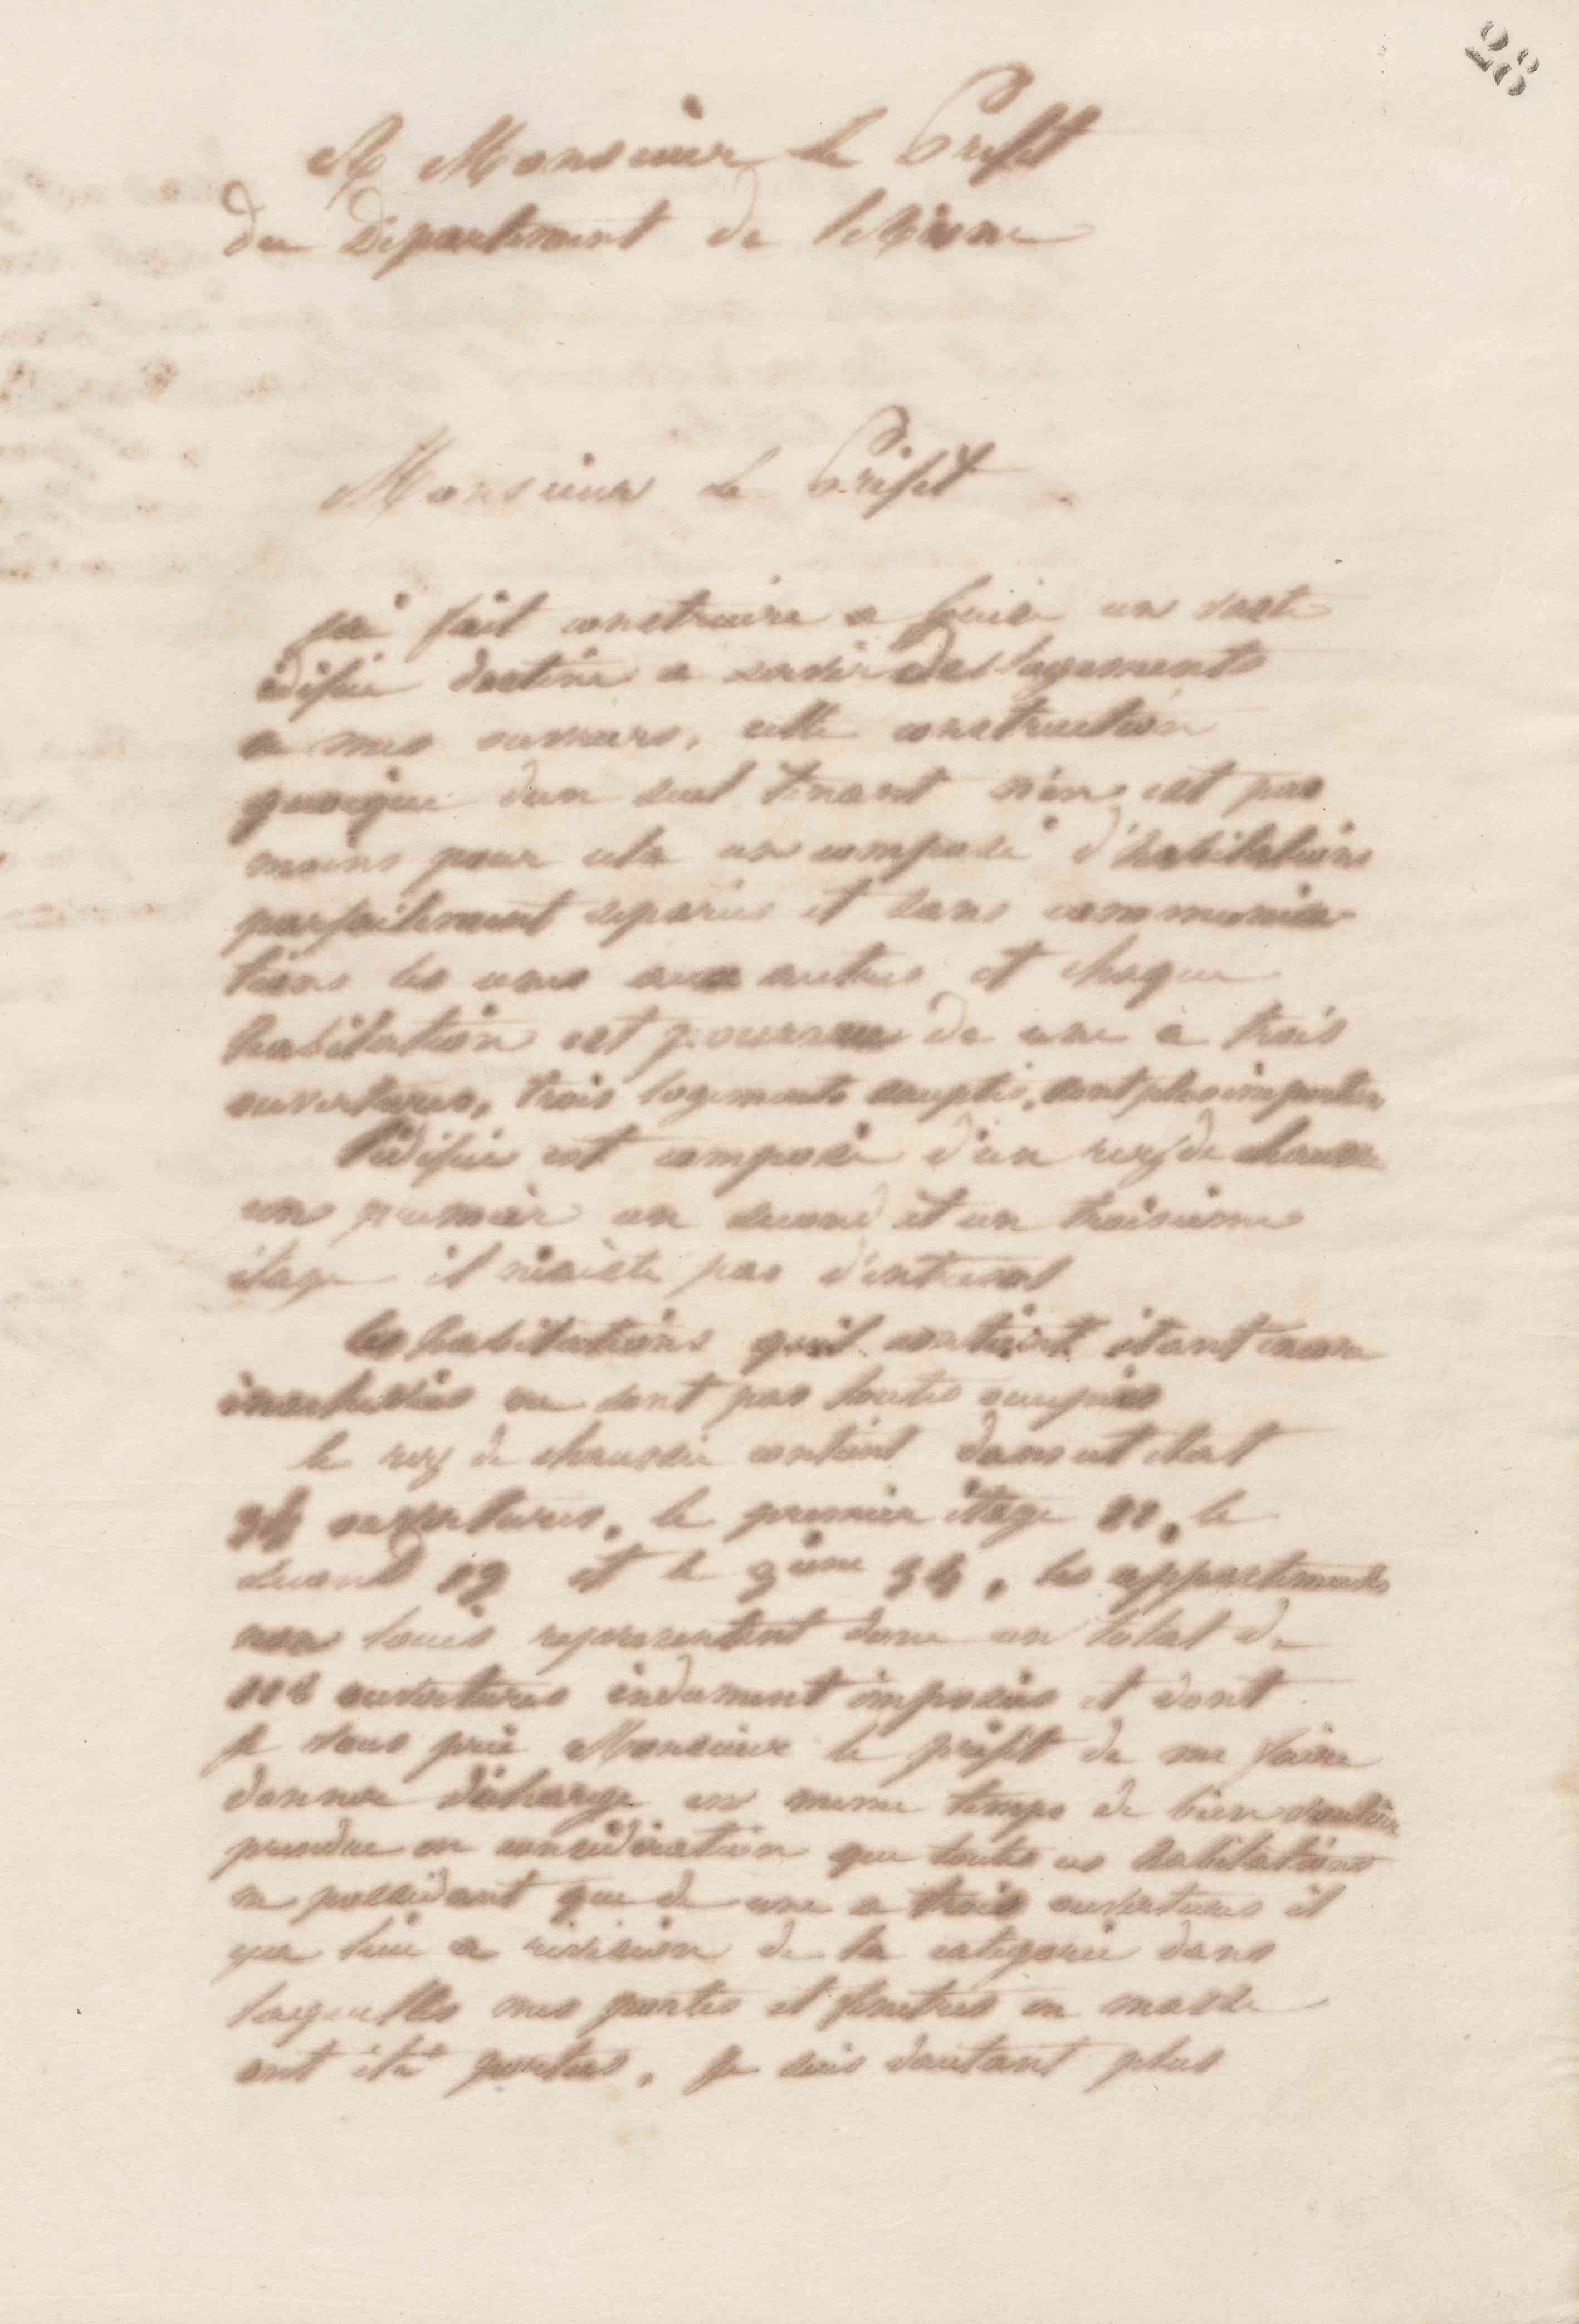 28
A Monsieur le Préfet
du Département de l'Aisne
Monsieur le Préfet
j'ai fait construire a Guise un vaste
édifice destiné a servir des logements
a mes ouvriers, cette construction
quoique d'un seul tenant n'en est pas
moins pour cela un composé d'habitations
parfaitement separées et sans communica-
tions les unes aux autres et chaque
habitation est pourvue de une a trois
ouvertures, trois logements exceptés, sont plus importans
l'édifice est composé d'un rez de chaussée
un premier un second et un troisième
étage il n'existe pas d'entresol
les habitations qu'il contient étant encore
inachevées ne sont pas toutes occupées
le rez de chaussée contient dans cet état
34 ouvertures, le premier étage le
second et le 3ième 34, les appartements
non loués representent donc un total de
ouvertures indument imposées et dont
je vous prie Monsieur le préfet de me faire
donner décharge en meme temps de bien vouloir
prendre en considération que toutes ces habitations
ne possédant que de une a trois ouvertures il
y a lieu a révision de la catégorie dans
laquelles mes portes et fenetres en masse
ont été portées, je suis dautant plus